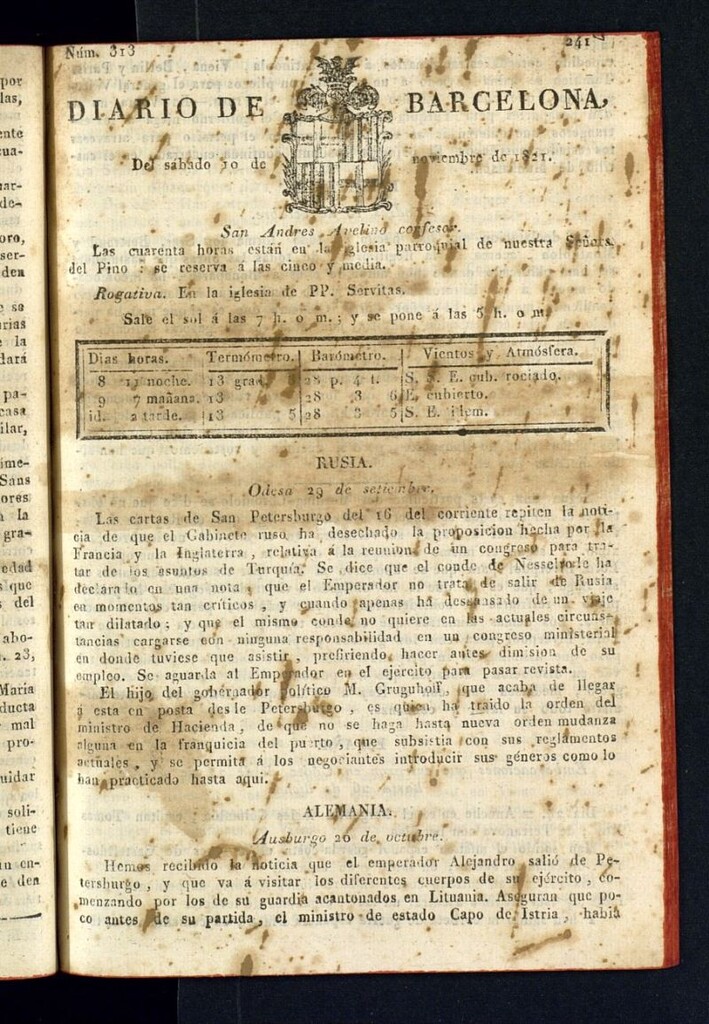 Núm. 313
241
DIARIO DE BARCELONA,
Del sábado 10 de noviembre de 1821.
San Andres Avelino confesor.
Las cuarenta horas están en la iglesia parroquial de nuestra Señora
del Pino : se reserva á las cinco y media.
Rogativa. En la iglesia de PP. Servitas.
Sale el sol á las 7 h. 0 m. ; y se pone á las 5 h. 0 m.
Dias horas. Termómetro. Barómetro. Vientos y Atmósfera.
8 11 noche. 13 grad. 28 p. 4 l. S. S. E. cub. rociado.
9 7 mañana. 13 28 3 6 E. cubierto.
id. 2 tarde. 13 5 28 3 5 S. E. idem.
RUSIA.
Odesa 29 de setiembre.
Las cartas de San Petersburgo del 16 del corriente repiten la noti-
cia de que el Gabinete ruso ha desechado la proposicion hecha por la
Francia y la Inglaterra , relativa á la reunion de un congreso para tra-
tar de los asuntos de Turquía. Se dice que el conde de Nesselrode ha
declarado en una nota , que el Emperador no trata de salir de Rusia
en momentos tan críticos , y cuando apenas ha descansado de un viaje
tan dilatado ; y que el mismo conde no quiere en las actuales circuns-
tancias cargarse con ninguna responsabilidad en un congreso ministerial
en donde tuviese que asistir , prefiriendo hacer antes dimision de su
empleo. Se aguarda al Emperador en el ejercito para pasar revista.
El hijo del gobernador político M. Gruguhoff, que acaba de llegar
á esta en posta desde Petersburgo , es quien ha traido la orden del
ministro de Hacienda, de que no se haga hasta nueva orden mudanza
alguna en la franquicia del puerto , que subsistia con sus reglamentos
actuales , y se permita á los negociantes introducir sus géneros como lo
han practicado hasta aqui.
ALEMANIA.
Ausburgo 20 de octubre.
Hemos recibido la noticia que el emperador Alejandro salió de Pe-
tersburgo , y que va á visitar los diferentes cuerpos de su ejército , co-
menzando por los de su guardia acantonados en Lituania. Aseguran que po-
co antes de su partida , el ministro de estado Capo de Istria , habia